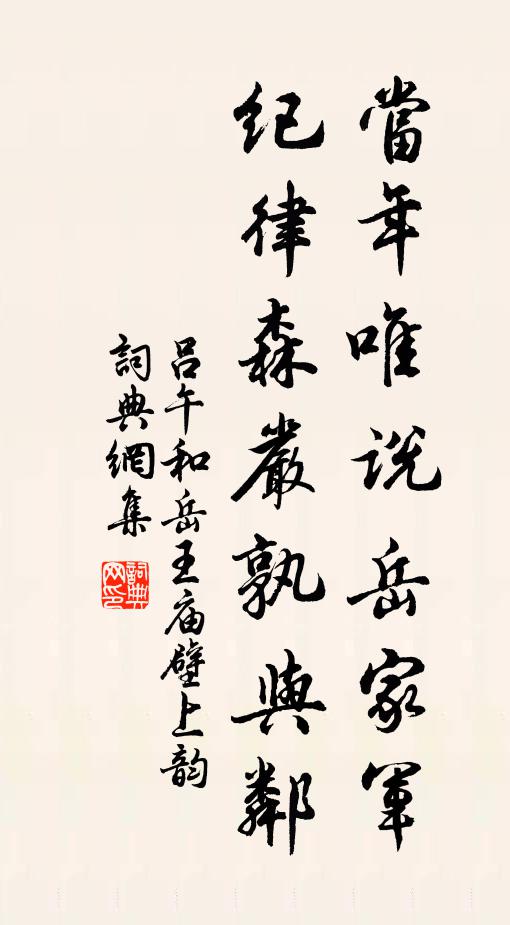 當年唯說岳家軍
紀律森嚴孰與鄰
呂午和岳王廟壁上韵
詞典網集
詞典网印